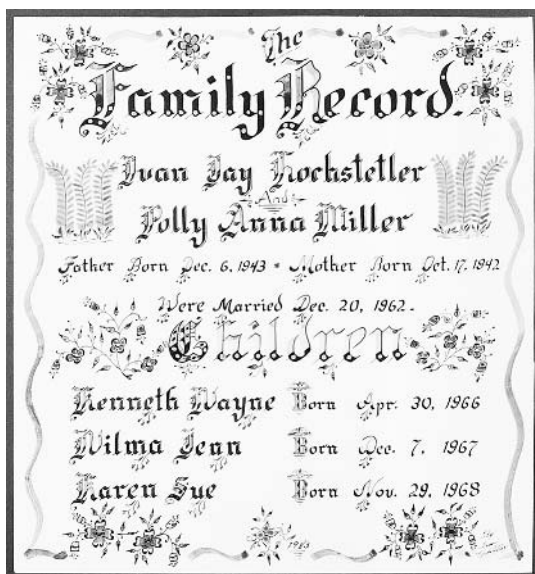 The
Family Record.
Ivan Jay Hochstetler
And
Polly Anna Miller
Father Born Dec. 6, 1943 * Mother Born Oct. 17, 1942
Were Married Dec. 20, 1962.
Children
Kenneth Wayne Born Apr. 30, 1966
Wilma Jean Born Dec. 7, 1967
Karen Sue Born Nov. 29, 1968